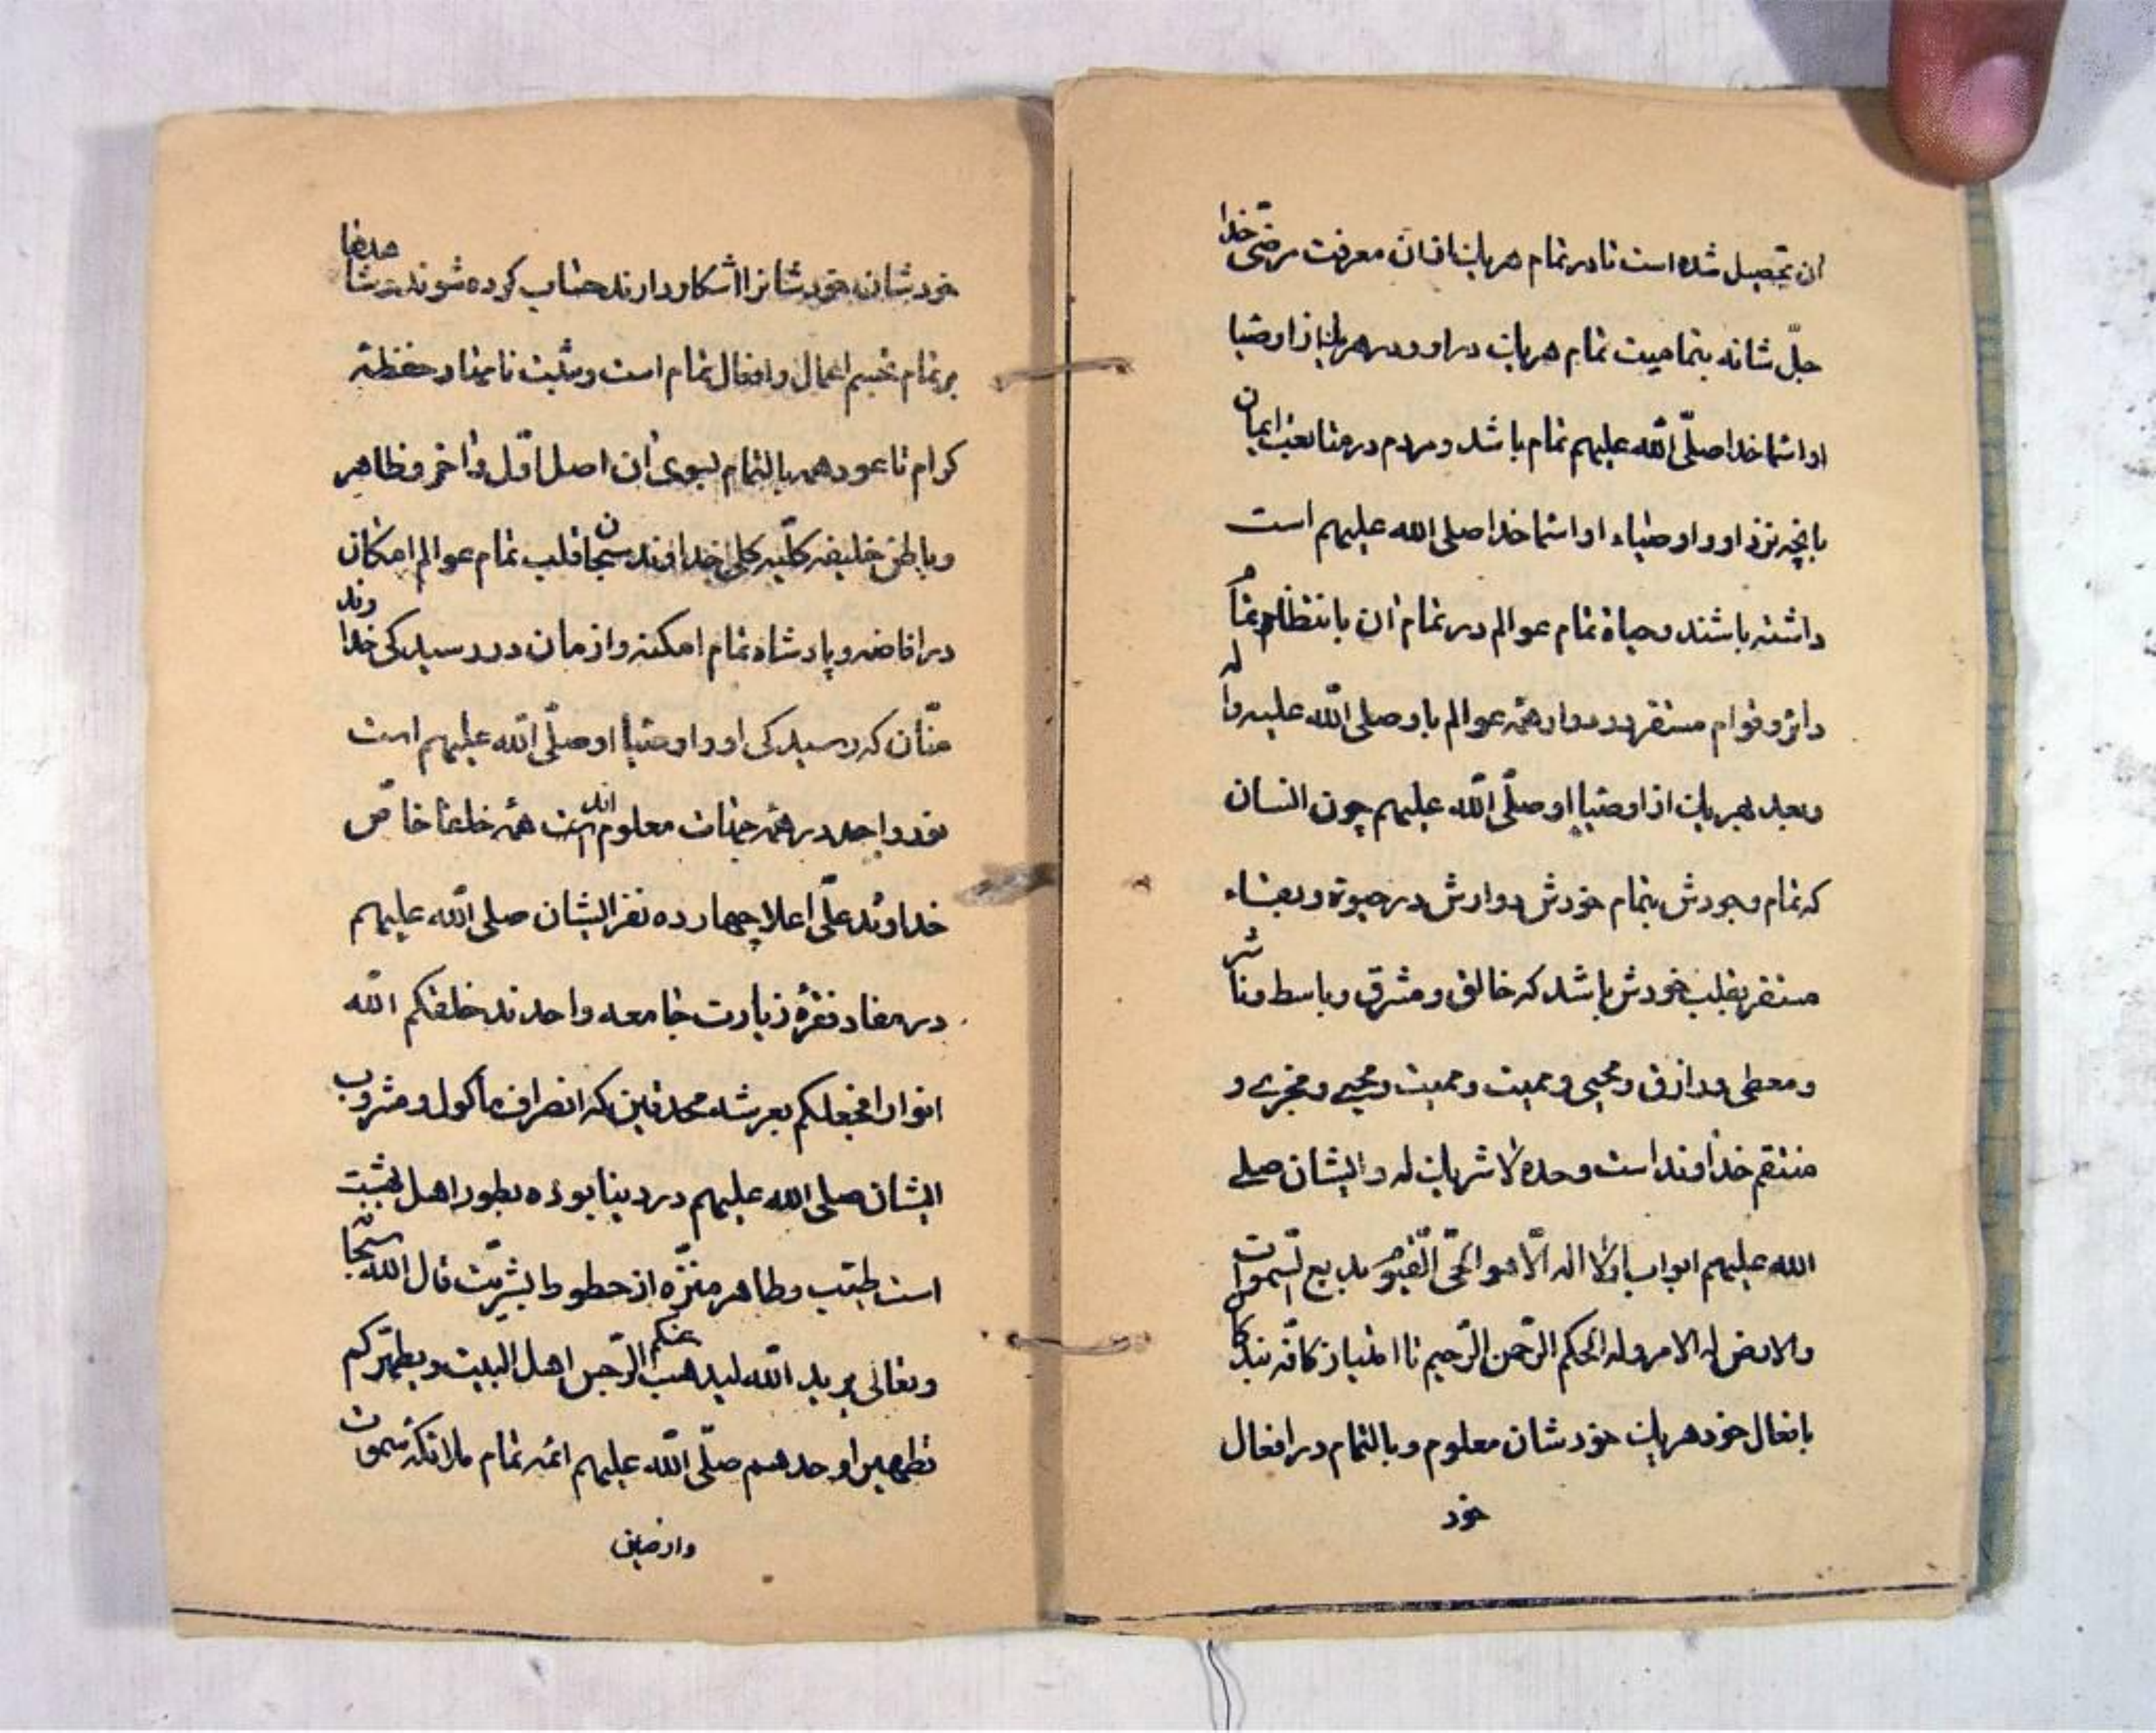 ان تحصیل شده است تا در تمام هر یک از آن معرفت مرضی خدا
جلّ شانه بتمامیت تمام هر یک در او و در هر یک از اوصیا
او اسما خدا صلّی الله علیهم تمام باشد و مردم در متابعت ایمان
بانچه نزد او و اوصیاء او اسما خدا صلی الله علیهم است
داشته باشند و حیاة تمام عوالم در تمام آن بانتظام تمام
دائر و قوام مستقر و دوار همه عوالم باو صلی الله علیه و اله
و بعد بهر یک از اوصیا او صلّی الله علیهم چون انسان
که تمام وجودش بتمام خودش دوارش در حیوة و بقاء
مستقر بقلب خودش باشد که خالق و مشرق و باسط و ناشر
و معطی و رازق و محیی و ممیت و ممیت و محیی و مجزی و
منتقم خداوند است وحده لا شریک له و ایشان صلی
الله علیهم ابواب لا اله الّا هو الحیّ القیّوم بدیع السّموات
والارض له الامر وله الحکم الرّحمن الرّحیم تا امتیاز کافّه بندگان
بافعال خود هر یک خودشان معلوم و بالتمام در افعال
خود
خودشان خودشانرا آشکار دارند حساب کرده شوند
بر تمام اعمال و افعال تمام است و مثبت حفظه
کرام تا عود همه بالتمام بسوی آن اصل اوّل و آخر و ظاهر
و باطن خلیفه کلّیه کلی خداوند سبحان قلب تمام عوالم امکان
در افاضه و پادشاه تمام امکنه و ازمان در رسیدگی خداوند
منّان که رسیدگی او و اوصیا او صلّی الله علیهم است
واحد در همه جنات معلوم همه خلفا خاصّ
خداوند علّی اعلا چهارده نفر ایشان صلی الله علیهم
در مفاد فقرهٔ زیارت جامعه واحدند خلقکم الله
انوارا فجعلکم بعرشه محدقین که انصراف مأکول و مشروب
ایشان صلی الله علیهم در دنیا بوده بطور اهل بهشت
است طیّب و طاهر منزّه از بشریّت قال الله سبحانه
و تعالی یرید الله لیذهب عنکم الرّجس اهل البیت و یطهّرکم
تطهیرا و حدهم صلّی الله علیهم ائمه تمام ملائکه سموات
وارضین